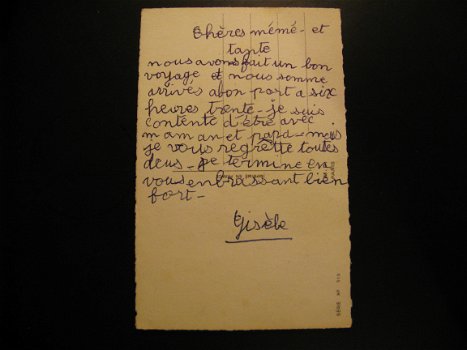 Chères mémé - et
tante
nous avons fait un bon
voyage et nous somme
arrivés a bon port a six
heures trente - je suis
contente d'être avec
maman et papa - mais
je vous regrette toutes
deus - je termine en
vous enbrassant bien
fort -
Gisèle